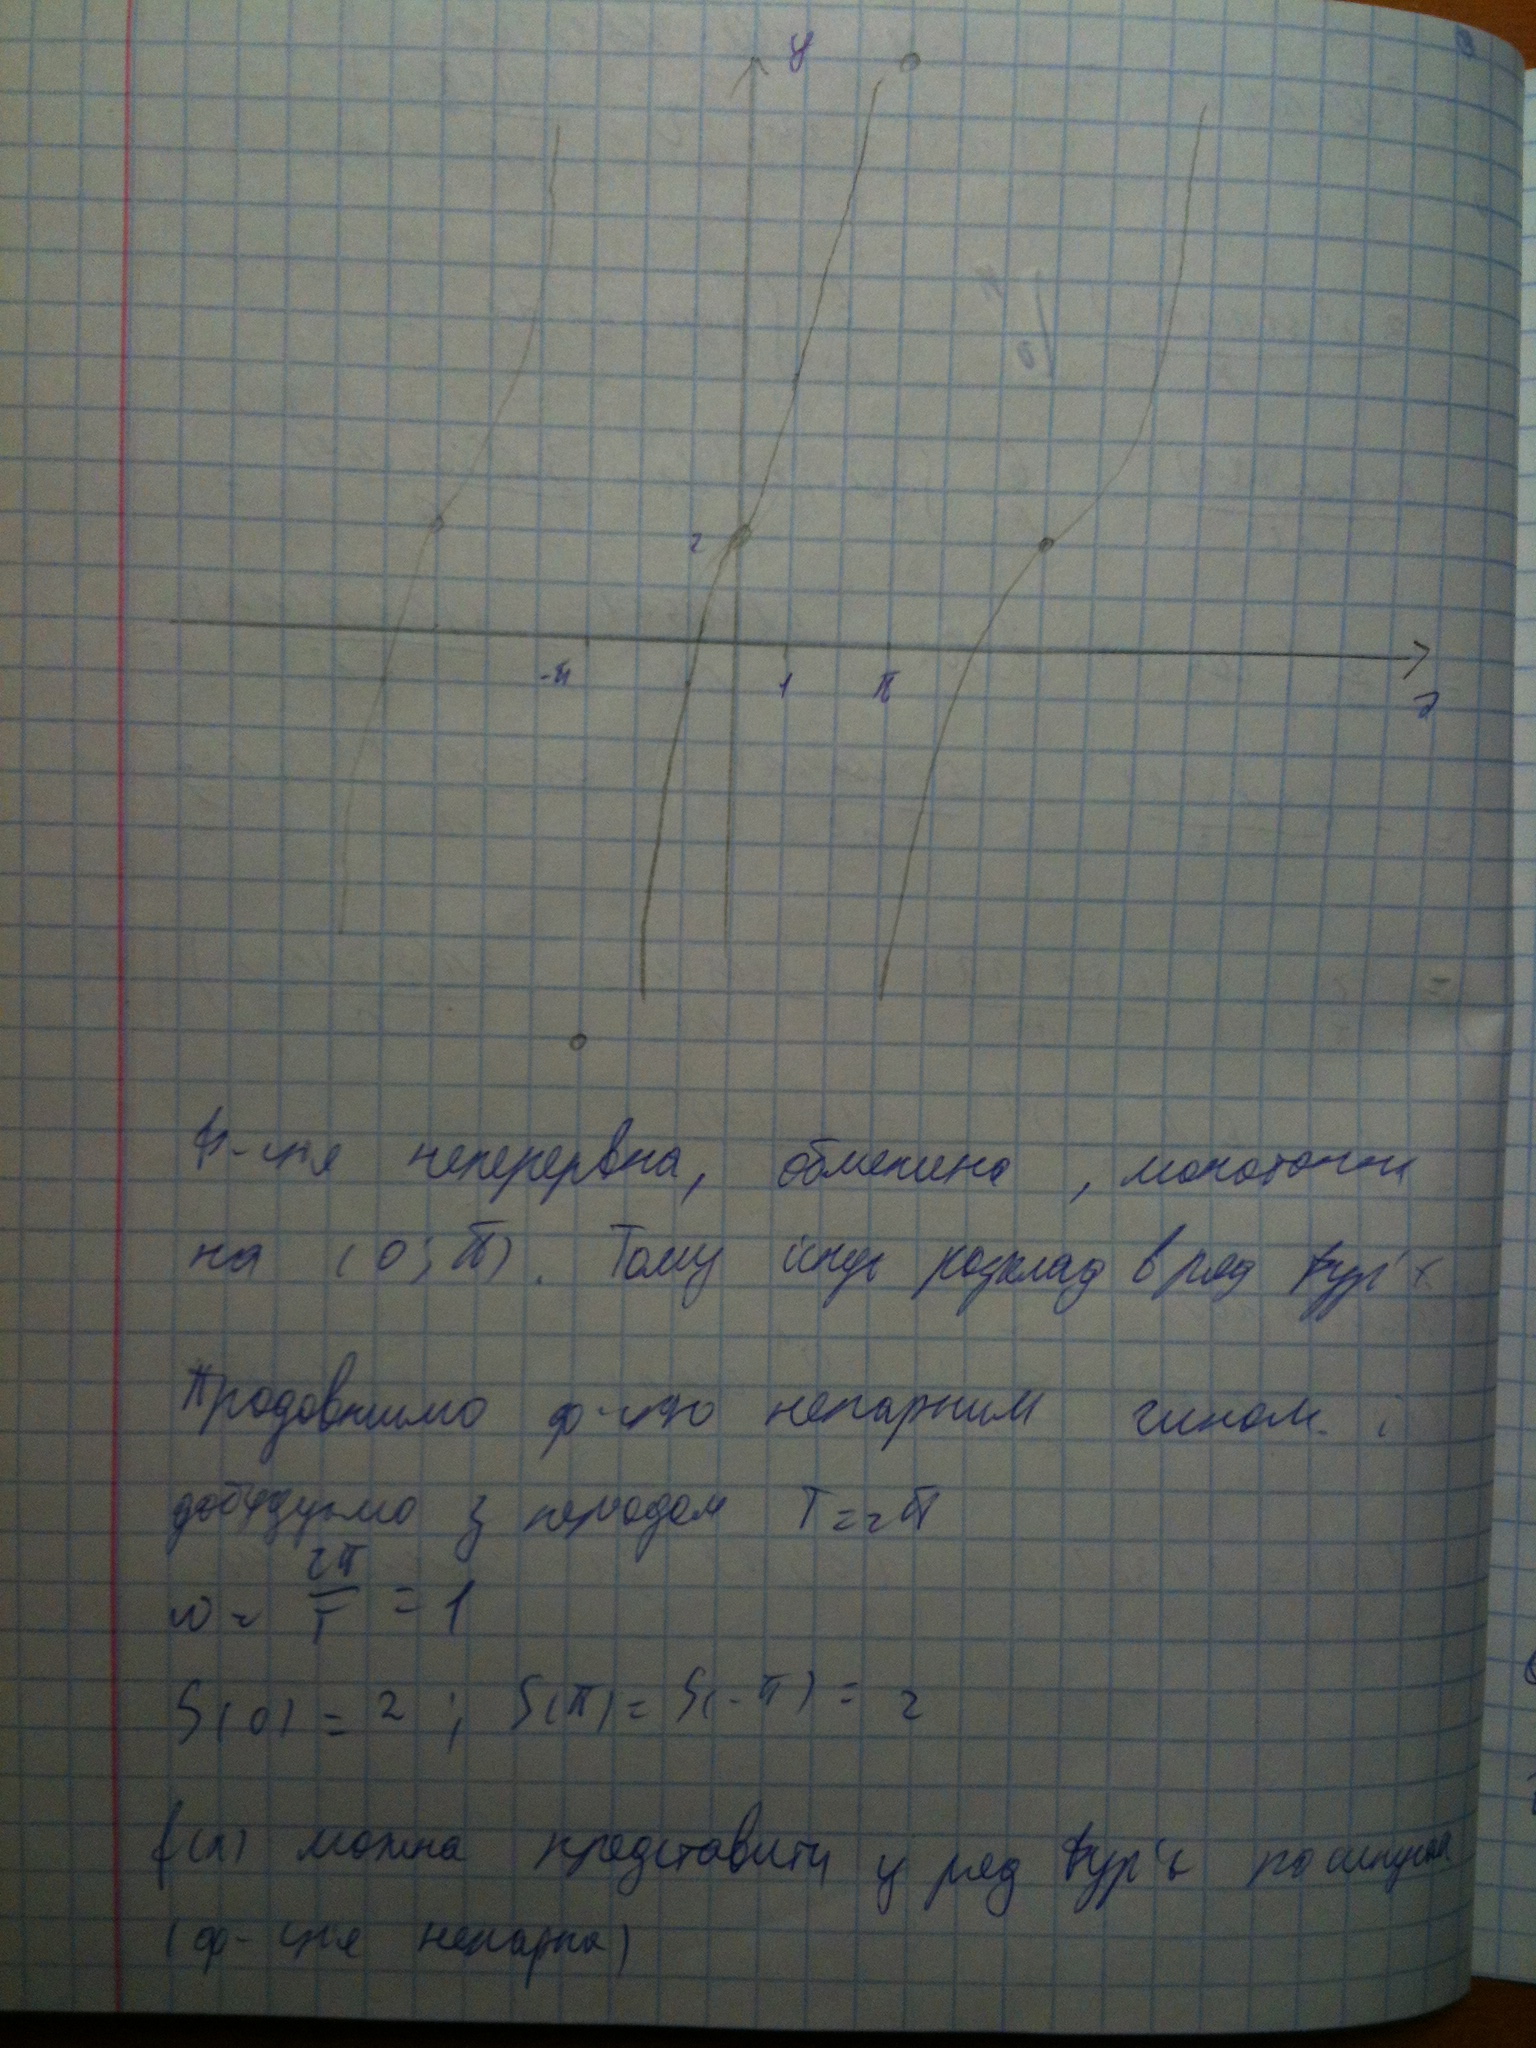 y
2
-π 1 π
Ф-ція неперервна, обмежена, монотонна
на (0; π). Тому існує розклад в ряд Фур'є
Продовжимо ф-цію непарним чином і
добудуємо з періодом T=2π
w = 2π/T = 1
S(0) = 2 ; S(π) = S(-π) = 2
f(x) можна представити у ряд Фур'є по синусах
(ф-ція непарна)